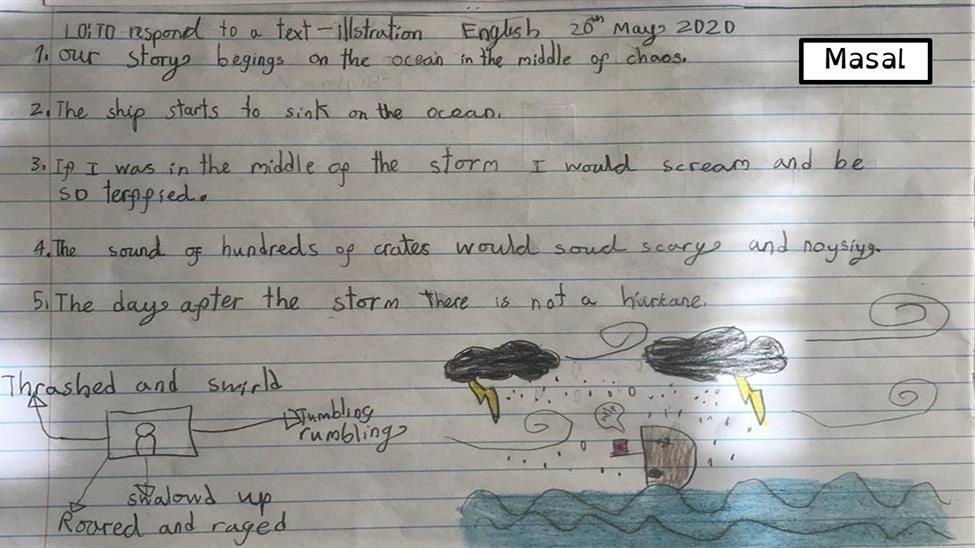 LO:TO respond to a text-illstration English 20th May 2020
Masal
1. Our story begings on the ocean in the middle of chaos.
2. The ship starts to sink on the ocean.
3. If I was in the middle of the storm I would scream and be
so terffied.
4. The sound of hundreds of crates would soud scary and noysiy.
5. The day after the storm there is not a hurrcane.
Thrashed and swirld
Tumbling
rumbling
swalowd up
Roared and raged